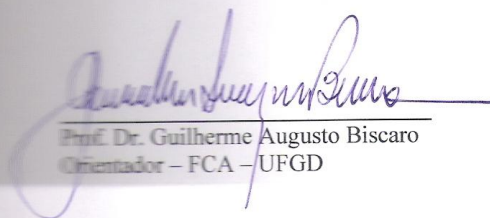 Prof. Dr. Guilherme Augusto Biscaro
Orientador – FCA – UFGD